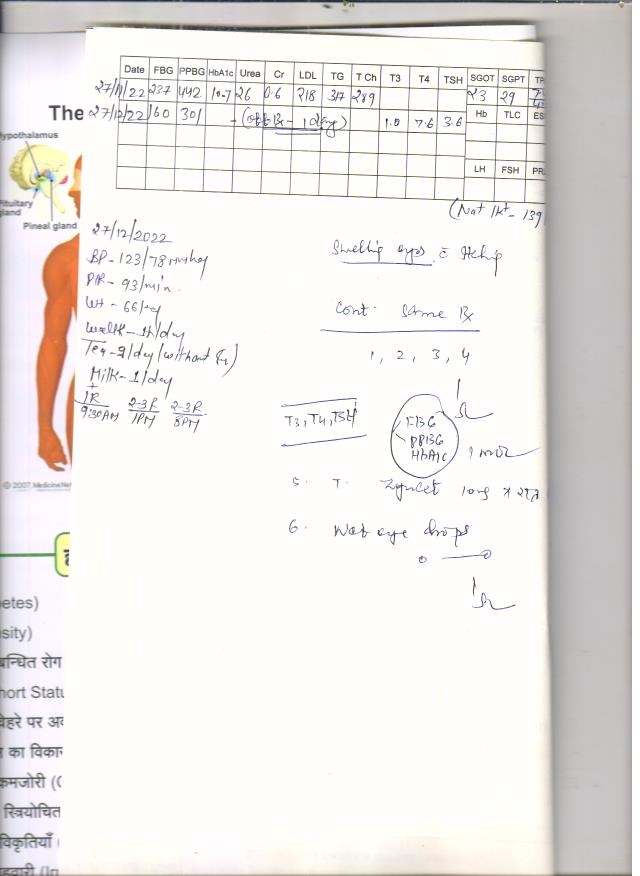 Date FBG PPBG HbA1c Urea Cr LDL TG T Ch T3 T4 TSH SGOT SGPT
27/11/22 237 442 10.7 26 0.6 218 317 289 23 29
27/12/22 160 301 - 1 day) 1.0 7.6 3.6 Hb TLC ES
LH FSH PR
The
ypothalamus
Pituitary
gland
Pineal gland
(Na+ 1K+ - 139
27/12/2022
BP - 123/78 mmhg
PR - 93/min.
Wt - 66 kg
Walk - 1h/day
Tea - 2/day (without
Milk - 1/day
+
1R 2-3R 2-3R
9:30AM 1PM 8PM
Swelling eyes c Itching
Cont. Same Rx
1, 2, 3, 4
T3, T4, TSH
FBG
PPBG
HbA1c
5. T.
6. eye drops
© 2007 MedicineNet
etes)
sity)
बन्धित रोग
hort Statu
चेहरे पर अ
का विका
कमजोरी (
स्त्रियोचित
विकृतियाँ